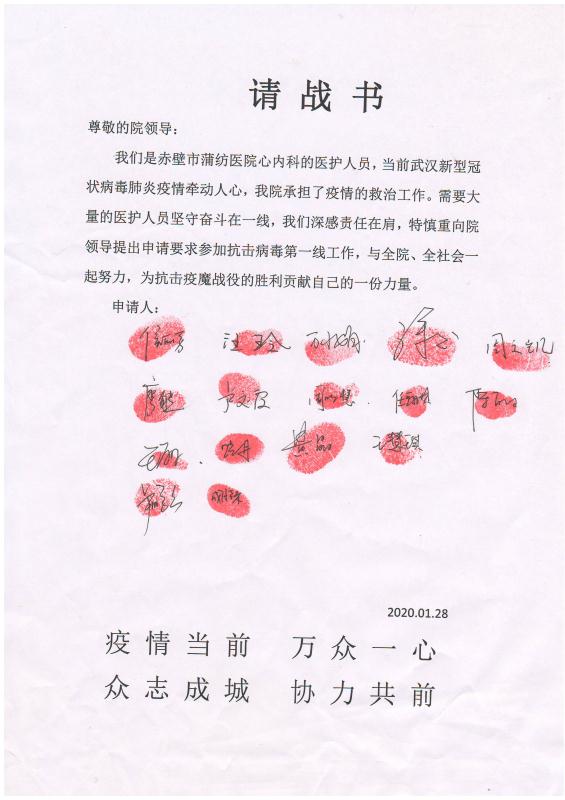 请战书
尊敬的院领导：
我们是赤壁市蒲纺医院心内科的医护人员，当前武汉新型冠
状病毒肺炎疫情牵动人心，我院承担了疫情的救治工作。需要大
量的医护人员坚守奋斗在一线，我们深感责任在肩，特慎重向院
领导提出申请要求参加抗击病毒第一线工作，与全院、全社会一
起努力，为抗击疫魔战役的胜利贡献自己的一份力量。
申请人：
汪玲
王慧琪
2020.01.28
疫情当前 万众一心
众志成城 协力共前